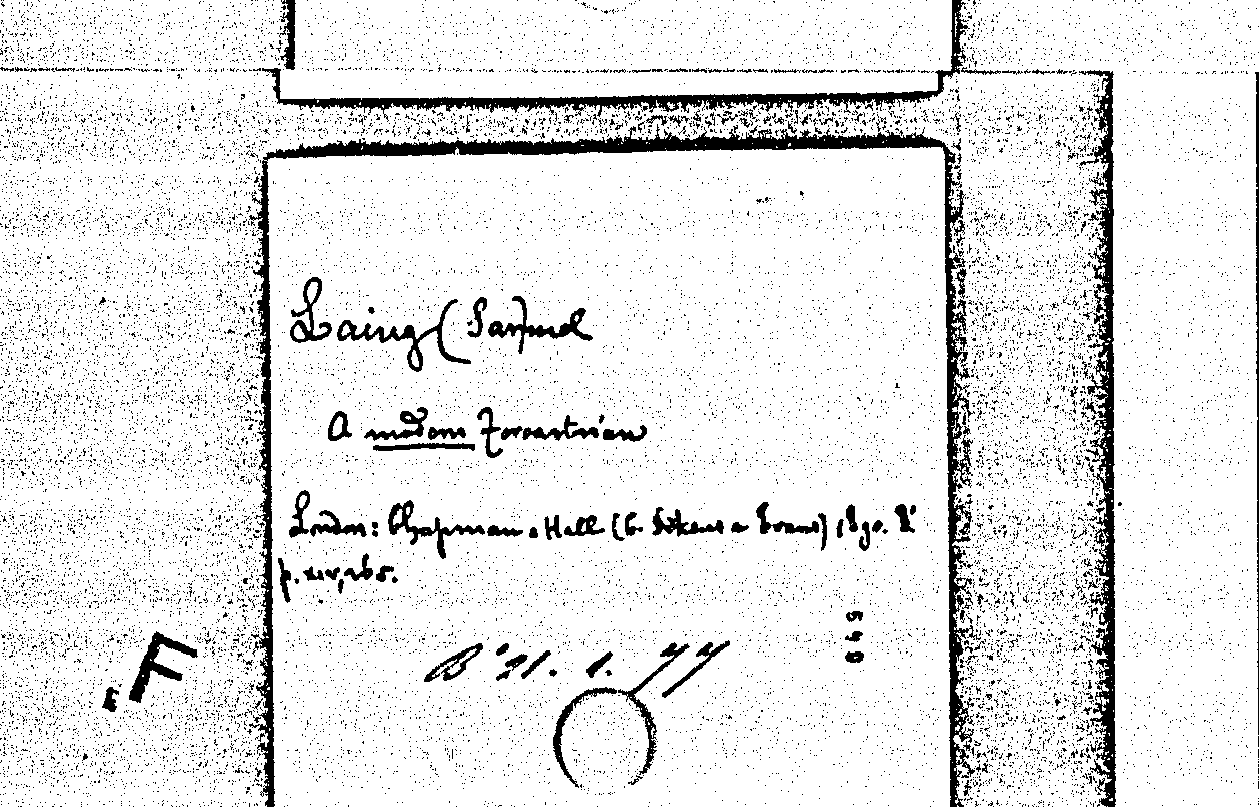 Laing (Samuel
A modern Zoroastrian
London: Chapman & Hall (C. Dickens & Evans), 890. 8°
p. XIV, 265.
B'21. 1. 44
649
F